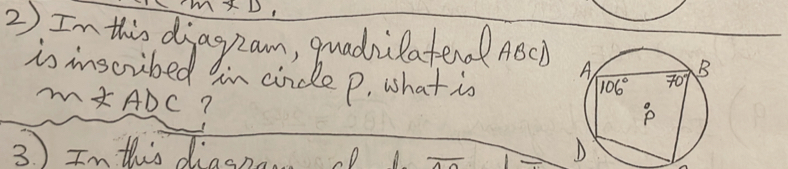 m∠D.
2) In this diagram, quadrilateral ABCD
is inscribed in circle P. what is
m∠ADC ?
A B
106° 70°
P
D
3.) In this diagram